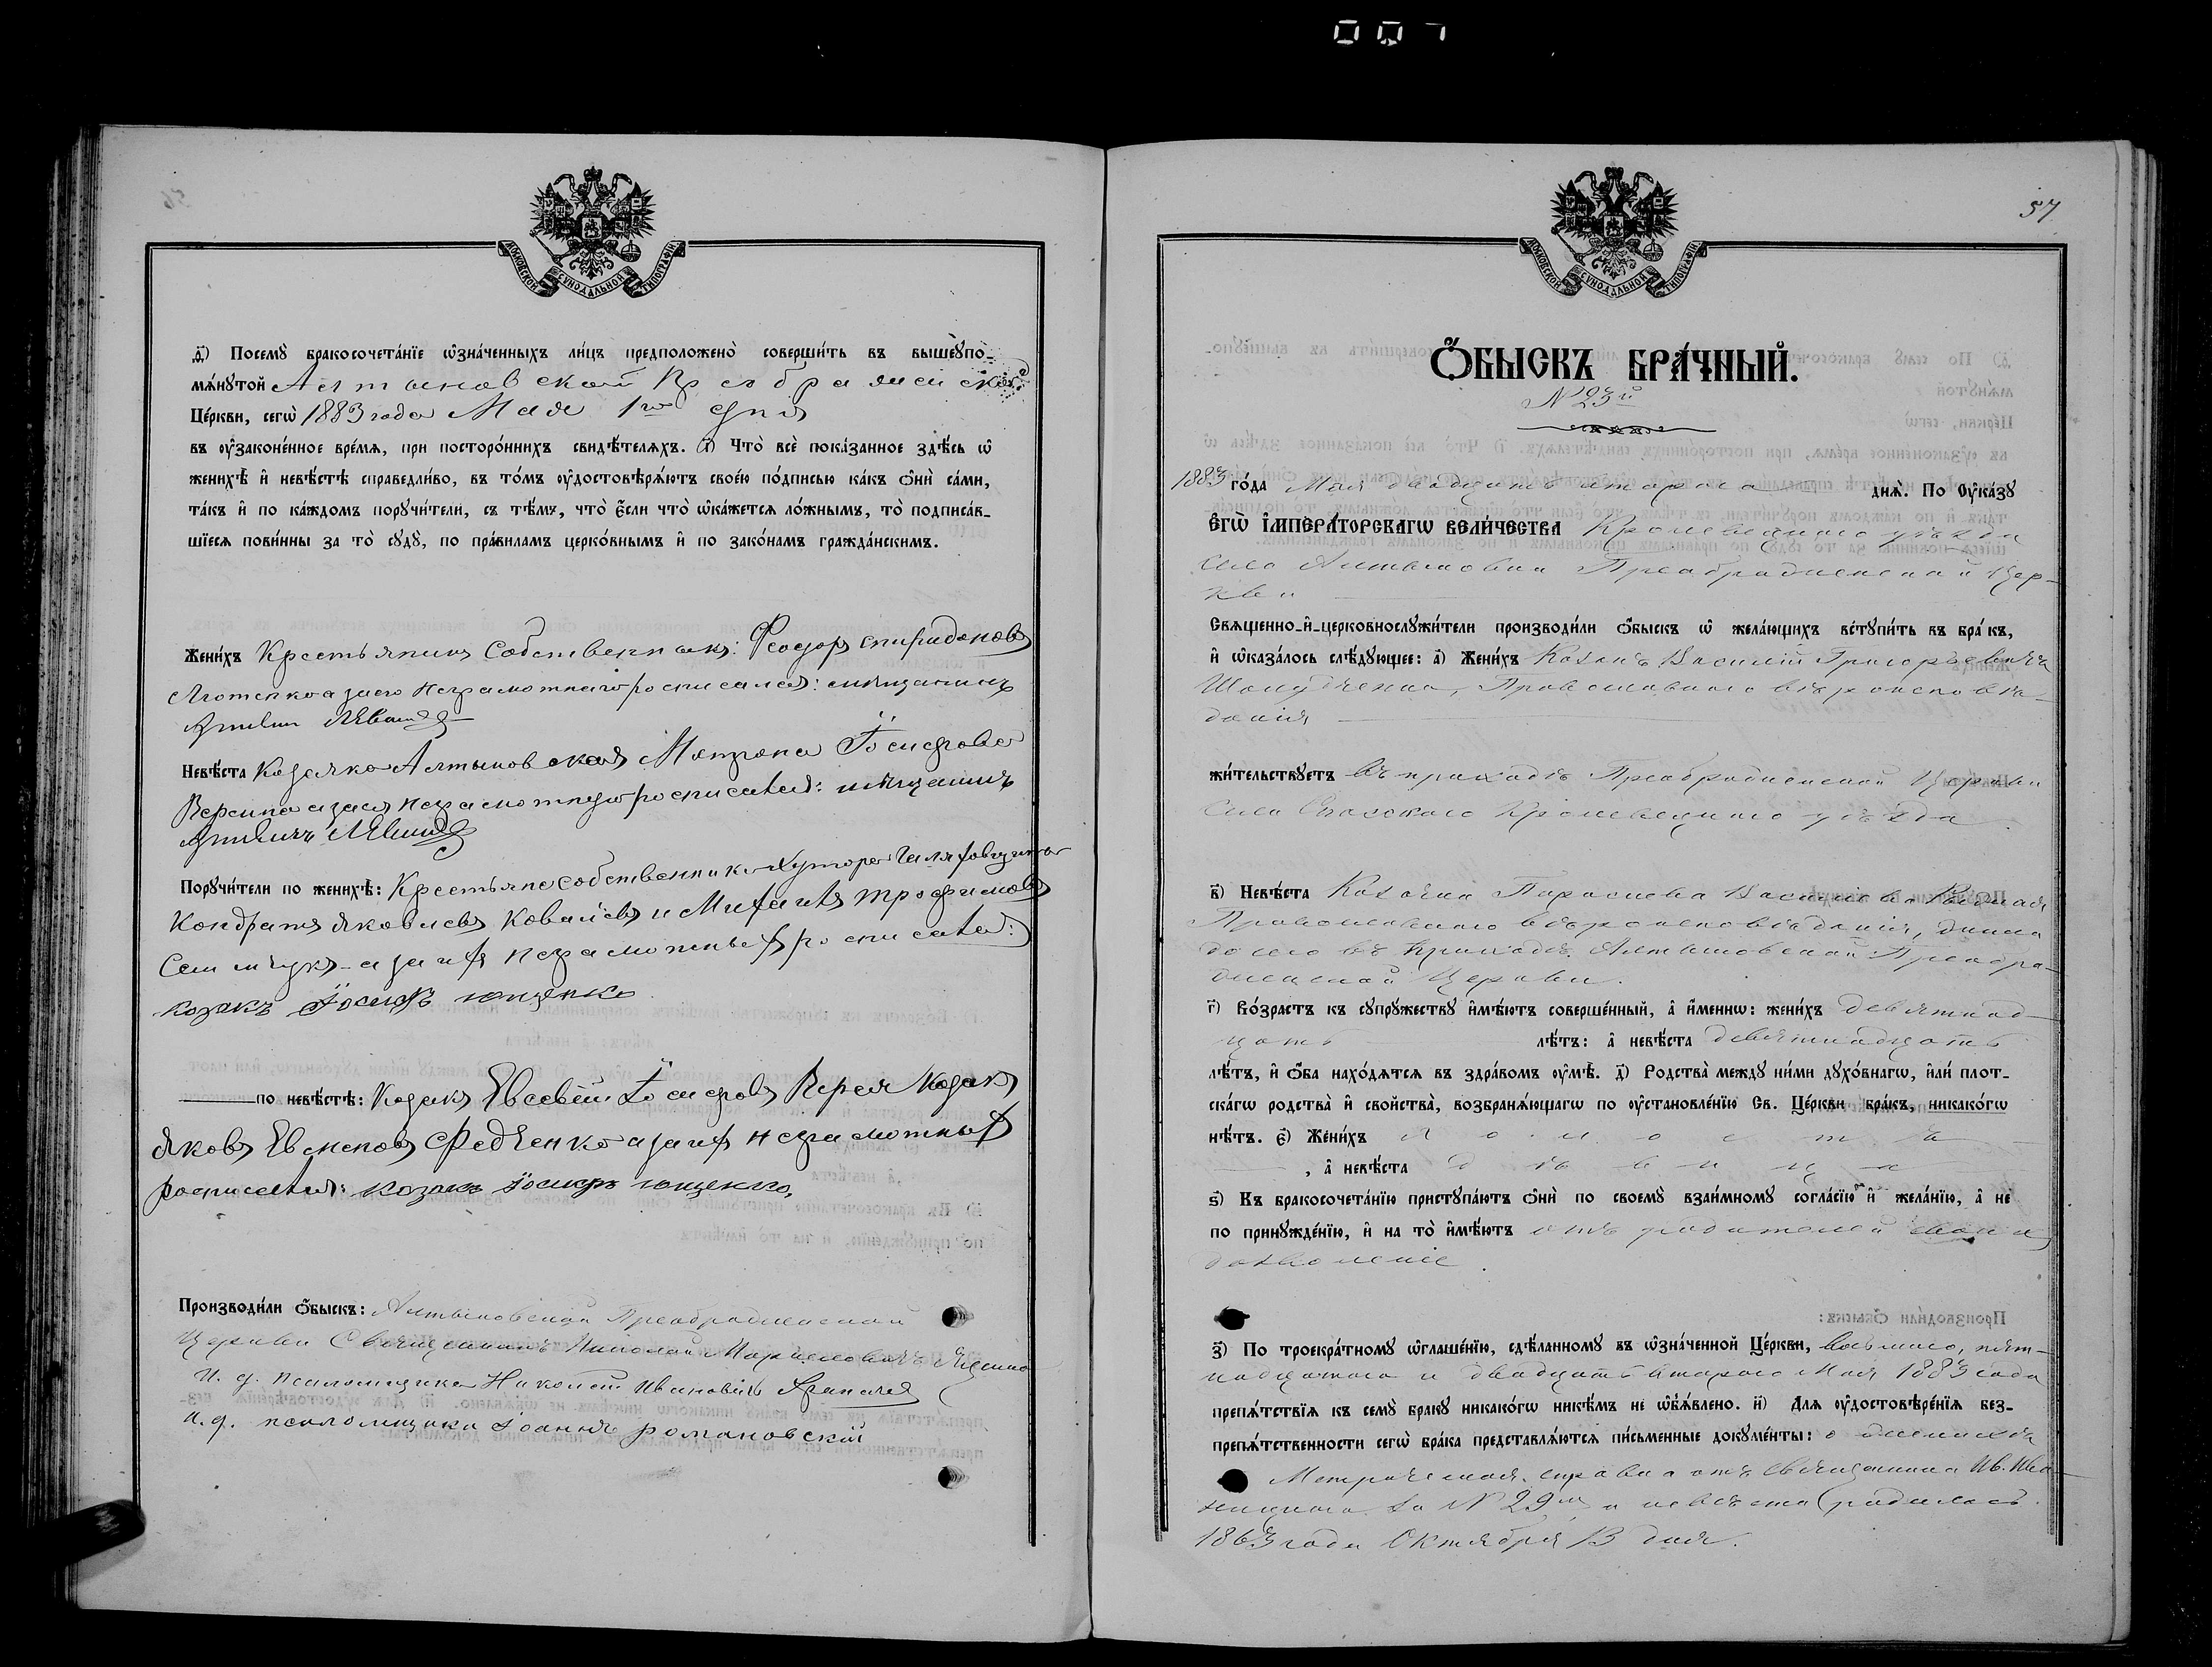 007
МОСКОВСКОЙ СѴНОДАЛЬНОЙ ТИПОГРАФІИ
д҃і) Посемꙋ̀ бракосочета́нїе ѡ҆зна́ченныхъ ли́цъ предположено̀ соверши́ть въ вышеꙋпо-
мѧ́нꙋтой Алтыновской Преображенской
Це́ркви, сегѡ̀ 1883 года Мая 1го дня
въ ᲂу҆законе́нное вре́мѧ, при посторо́ннихъ свидѣ́телѧхъ. і҃) Что̀ всѐ пока́занное здѣ́сь ѡ҆
женихѣ̀ и҆ невѣ́стѣ справедли́во, въ то́мъ ᲂу҆достовѣрѧ́ютъ свое́ю по́дписью ка́къ ѻ҆нѝ са́ми,
та́къ и҆ по ка́ждомъ порꙋчи́тели, съ тѣ́мъ, что̀ є҆́сли что̀ ѡ҆ка́жетсѧ ло́жнымъ, то̀ подписа́в-
шїесѧ пови́нны за то̀ сꙋдꙋ̀, по пра́виламъ церко́внымъ и҆ по зако́намъ гражда́нскимъ.
Жени́хъ Крестьянинъ Собственникъ: Феодоръ Спиридоновъ
а за его неграмотнаго росписался: мѣщанинъ
Невѣ́ста Козачка Алтыновская Матрона Іосифова
Вереина а за ея неграмотную росписался: мѣщанинъ
Порꙋчи́тели по женихѣ̀: Крестьяне собственники Хутора
Кондратъ Яковлевъ Ковалевъ и Михаилъ Трофимовъ
а за ихъ неграмотныхъ росписался:
козакъ Іосифъ Ющенко
по невѣ́стѣ: Козакъ Евсевій Іосифовъ Верея Козакъ
Яковъ Евменовъ Федченко а за ихъ неграмотныхъ
росписался: козакъ Іосифъ Ющенко.
Производи́ли ѻ҆́быскъ: Алтыновской Преображенской
Церкви Священникъ Николай Ященко
И. д. псаломщика Николай Ивановичъ
И. д. псаломщика Іоаннъ Романовскій
57
МОСКОВСКОЙ СѴНОДАЛЬНОЙ ТИПОГРАФІИ
Ѻ҆́БЫСКЪ БРА́ЧНЫЙ.
№ 23й
1883 го́да Мая двадцать втораго днѧ̀. По ᲂу҆ка́зꙋ
Є҆ГѠ̀ І҆МПЕРА́ТОРСКАГѠ ВЕЛИ́ЧЕСТВА Кролевецкаго уѣзда
села Алтыновки Преображенской Цер-
кви
Свѧщенно-и҆-церковнослꙋжи́тели производи́ли ѻ҆́быскъ ѡ҆ жела́ющихъ встꙋпи́ть въ бра́къ,
и҆ ѡ҆каза́лось слѣ́дꙋющее: а҃) Жени́хъ Козакъ Василій Григорьевичъ
Православнаго вѣроисповѣ-
данія
жи́тельствꙋетъ въ приходѣ Преображенской Церкви
села Спаского Кролевецкаго уѣзда
в҃) Невѣ́ста Козачка Параскева Васильева
Православнаго вѣроисповѣданія,
въ приходѣ Алтыновской Преобра-
женской Церкви.
г҃) Во́зрастъ къ сꙋпрꙋ́жествꙋ и҆мѣ́ютъ соверше́нный, а҆ и҆́менно: жени́хъ девятнад-
цать лѣ́тъ: а҆ невѣ́ста девятнадцать
лѣ́тъ, и҆ ѻ҆́ба нахо́дѧтсѧ въ здра́вомъ ᲂу҆мѣ̀. д҃) Родства̀ междꙋ ни́ми дꙋхо́внагѡ, и҆лѝ плот-
ска́гѡ родства̀ и҆ свойства̀, возбранѧ́ющагѡ по ᲂу҆становле́нїю Св. Це́ркви бра́къ, никако́гѡ
нѣ́тъ. є҃) Жени́хъ холостъ
, а҆ невѣ́ста дѣвица
ѕ҃) Къ бракосочета́нїю пристꙋпа́ютъ ѻ҆нѝ по своемꙋ̀ взаи́мномꙋ согла́сїю и҆ жела́нїю, а҆ не
по принꙋжде́нїю, и҆ на то̀ и҆мѣ́ютъ отъ родителей своихъ
дозволеніе.
з҃) По троекра́тномꙋ ѡ҆глаше́нїю, сдѣ́ланномꙋ въ ѡ҆зна́ченной Це́ркви, восьмаго, пят-
надцатаго и двадцать втораго Мая 1883 года
препѧ́тствїѧ къ семꙋ̀ бра́кꙋ никако́гѡ никѣ́мъ не ѡ҆б̾ѧ́влено. и҃) Длѧ ᲂу҆достовѣре́нїѧ без-
препѧ́тственности сегѡ̀ бра́ка представлѧ́ютсѧ пи́сьменные докꙋме́нты: о женихѣ
Метрическая справка отъ священника Ив.
за № 29м, а невѣста родилась
1863 года Октября 13 дня.